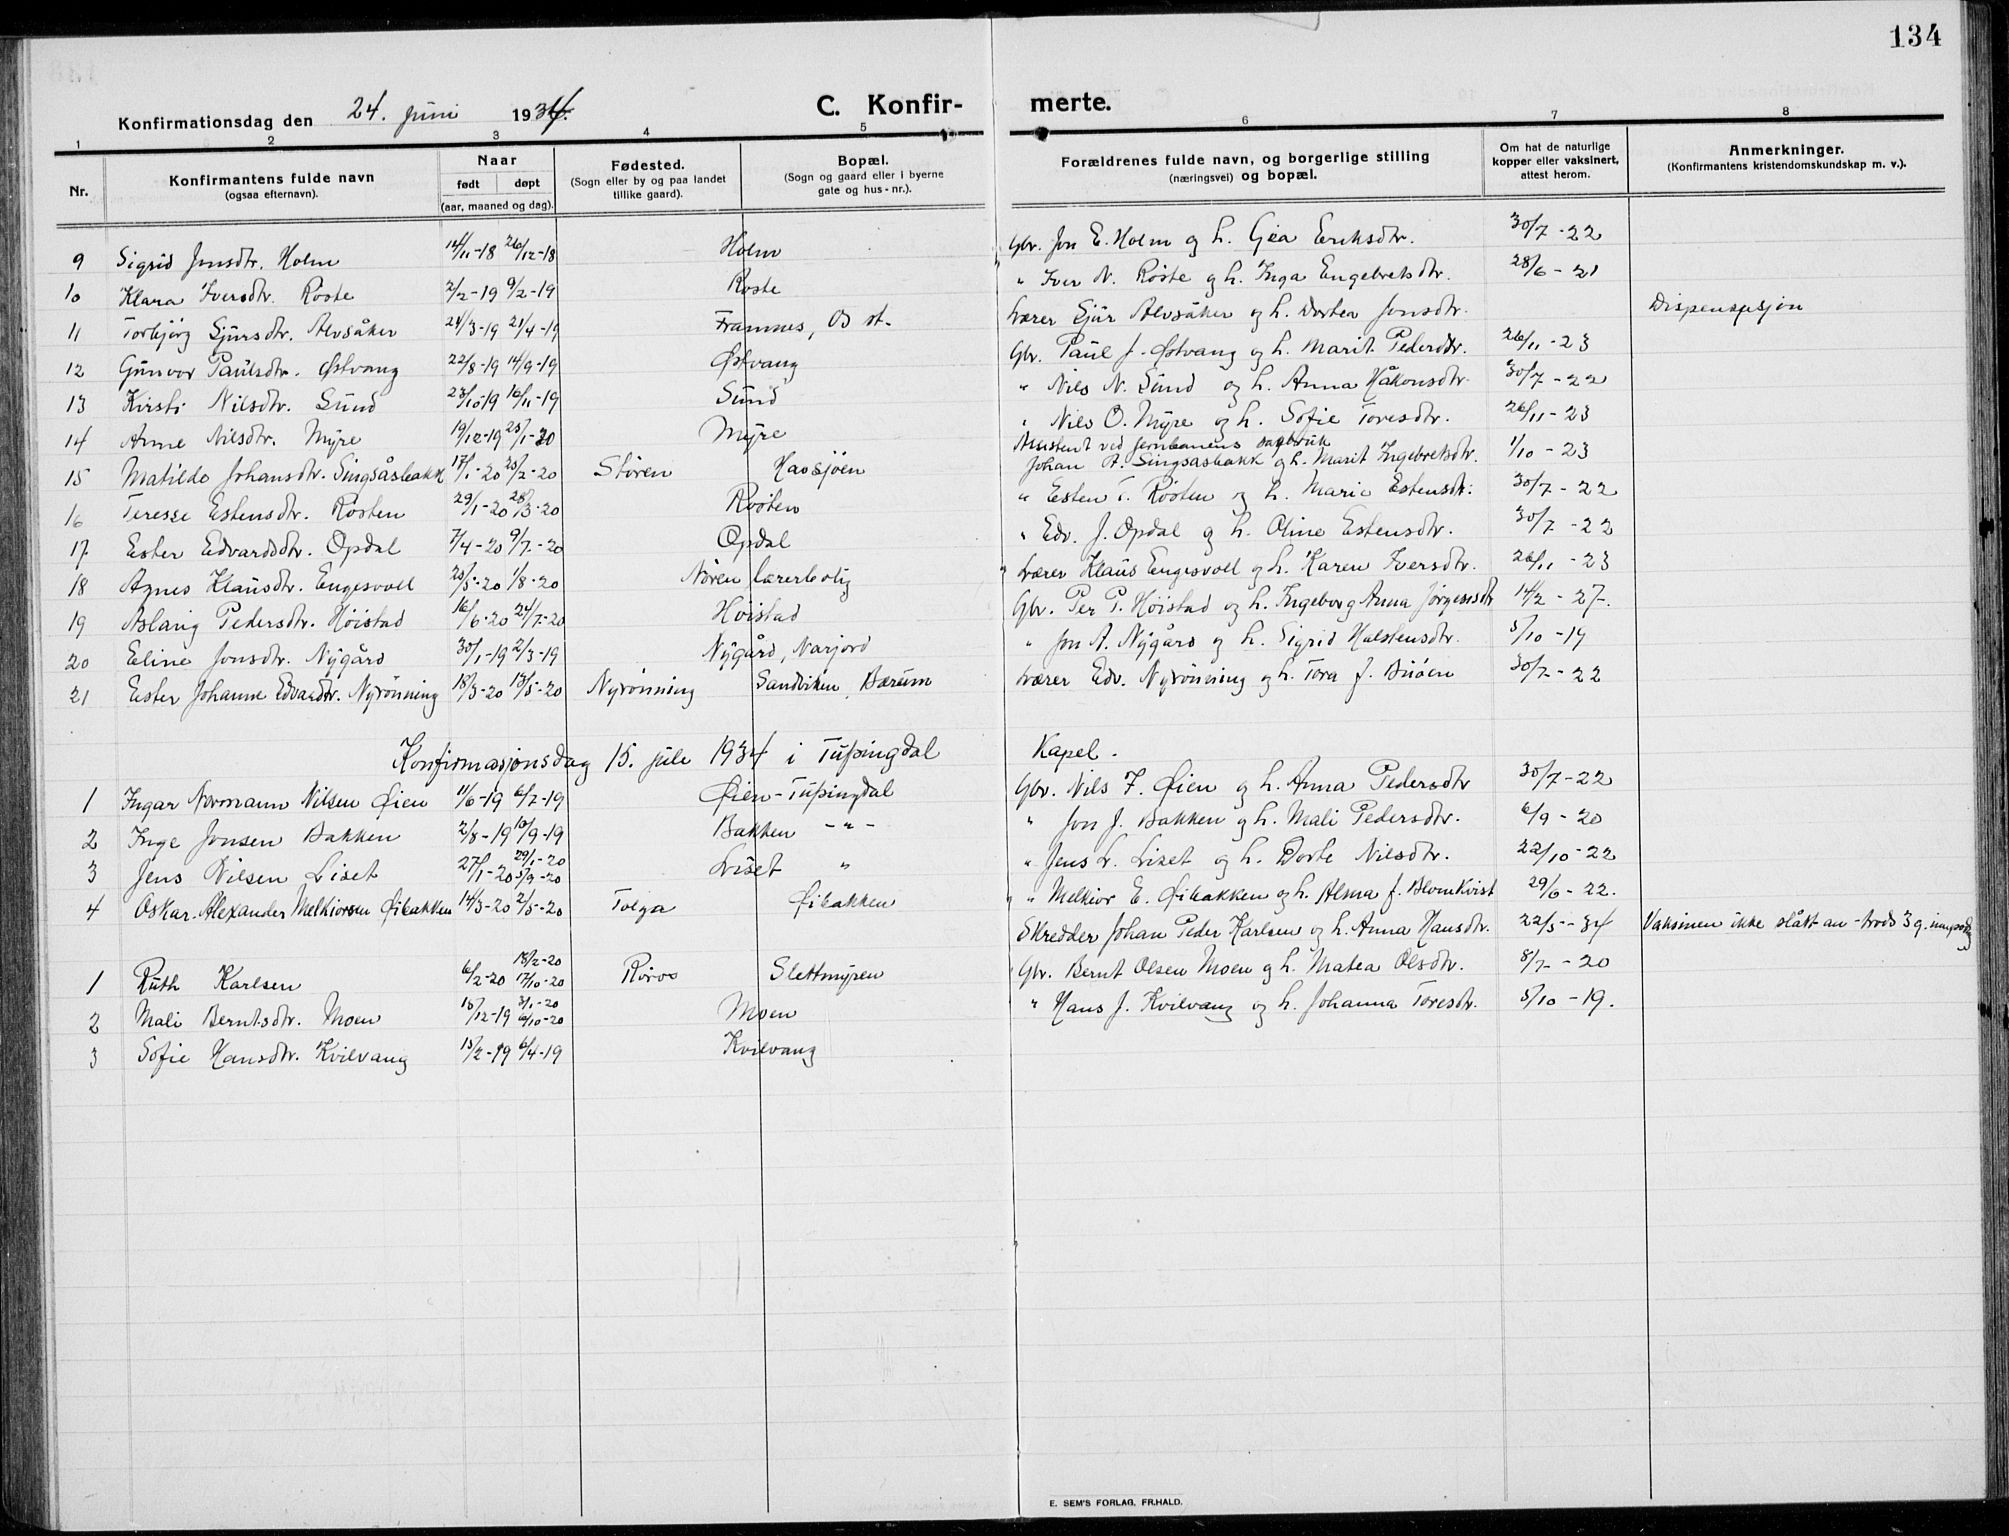 134
Konfirmationsdag den 24. juni 1934.
C. Konfir- merte.
1 2 3 4 5 6 7 8
Nr.
Konfirmantens fulde navn (ogsaa efternavn).
Naar født døpt (aar, maaned og dag).
Fødested. (Sogn eller by og paa landet tillike gaard).
Bopæl. (Sogn og gaard eller i byerne gate og hus-nr.).
Forældrenes fulde navn, og borgerlige stilling (næringsvei) og bopæl.
Om hat de naturlige kopper eller vaksinert, attest herom.
Anmerkninger. (Konfirmantens kristendomskundskap m. v.).
9 Sigrid Jonsdtr. Holm 14/11-18 26/12-18 Holm Gbr. Jon E. Holm og h. Gea Eriksdtr. 30/7-22
10 Klara Iversdtr. Røste 2/2-19 9/2-19 Røste " Iver N. Røste og h. Inga Engebretsdtr. 28/6-21
11 Torbjörg Sjursdtr. Alvsåker 24/3-19 21/4-19 Framnes, Os st. Lærer Sjur Alvsåker og h. Dortea Jonsdtr. Dispensasjon
12 Gunvor Paulsdtr. Østvang 22/8-19 14/9-19 Østvang Gbr. Paul J. Østvang og h. Marit Pedersdtr. 26/11-23
13 Kirsti Nilsdtr. Sund 23/10-19 16/11-19 Sund " Nils N. Sund og h. Anna Håkonsdtr. 30/7-22
14 Anne Nilsdtr. Myre 19/12-19 25/1-20 Myre " Nils O. Myre og h. Sofie Toresdtr. 26/11-23
15 Matilde Johansdtr. Singsåsbakk 17/1-20 25/2-20 Støren Hassjøen Assistent ved jernbanens sagbruk Johan A. Singsasbakk og h. Marit Ingebretsdtr. 1/10-23
16 Teresse Estensdtr. Røsten 29/1-20 28/3-20 Røsten " Esten T. Røsten og h. Marie Estensdtr. 30/7-22
17 Ester Edvardsdtr. Opdal 7/4-20 9/7-20 Opdal " Edv. J. Opdal og h. Oline Estensdtr. 30/7-22
18 Agnes Klausdtr. Engesvoll 25/5-20 1/8-20 Nören lærerbolig " Lærer Klaus Engesvoll og h. Karen Iversdtr. 26/11-23
19 Aslaug Pedersdtr. Höistad 16/6-20 24/7-20 Höistad Gbr. Per P. Höistad og h. Ingeborg Anna Jörgensdtr 14/2-27.
20 Eline Jonsdtr. Nygård 30/1-19 2/3-19 Nygård, Narjord " Jon A. Nygård og h. Sigrid Halstensdtr. 5/10-19
21 Ester Johanne Edvardsdtr. Nyrönning 18/3-20 13/5-20 Nyrönning Sandviken, Bærum Lærer Edv. Nyrönning og h. Tora J. Buöen 30/7-22
Konfirmasjonsdag 15. jule 1934 i Tufsingdal Kapel.
1 Ingar Normann Nilsen Øien 11/6-19 6/7-19 Øien-Tufsingdal Gbr. Nils J. Øien og h. Anna Pedersdtr 30/7-22
2 Inge Jonsen Bakken 2/8-19 10/9-19 Bakken -"- " Jon J. Bakken og h. Mali Pedersdtr. 6/9-20
3 Jens Nilsen Liset 27/1-20 29/1-20 5/9-20 Liset " " Jens L. Liset og h. Dorte Nilsdtr. 22/10-22
4 Oskar Alexander Melkiorsen Øibakken 14/3-20 2/5-20 Tolga Øibakken " Melkior E. Øibakken og h. Alma J. Blomkvist 29/6-22.
1 Ruth Karlsen 6/2-20 18/2-20 17/10-20 Röros Slettmyren Skredder Johan Peder Karlsen og h. Anna Hansdtr. 22/5-34 Vaksinen ikke slått an - trods 3 g.
2 Mali Berntsdtr. Moen 15/12-19 3/1-20 6/10-20 Moen Gbr. Bernt Olsen Moen og h. Matea Olsdtr. 8/7-20
3 Sofie Hansdtr. Kvilvang 15/2-19 6/4-19 Kvilvang " Hans J. Kvilvang og h. Johanna Toresdtr. 5/10-19.
E. SEM'S FORLAG, FR.HALD.